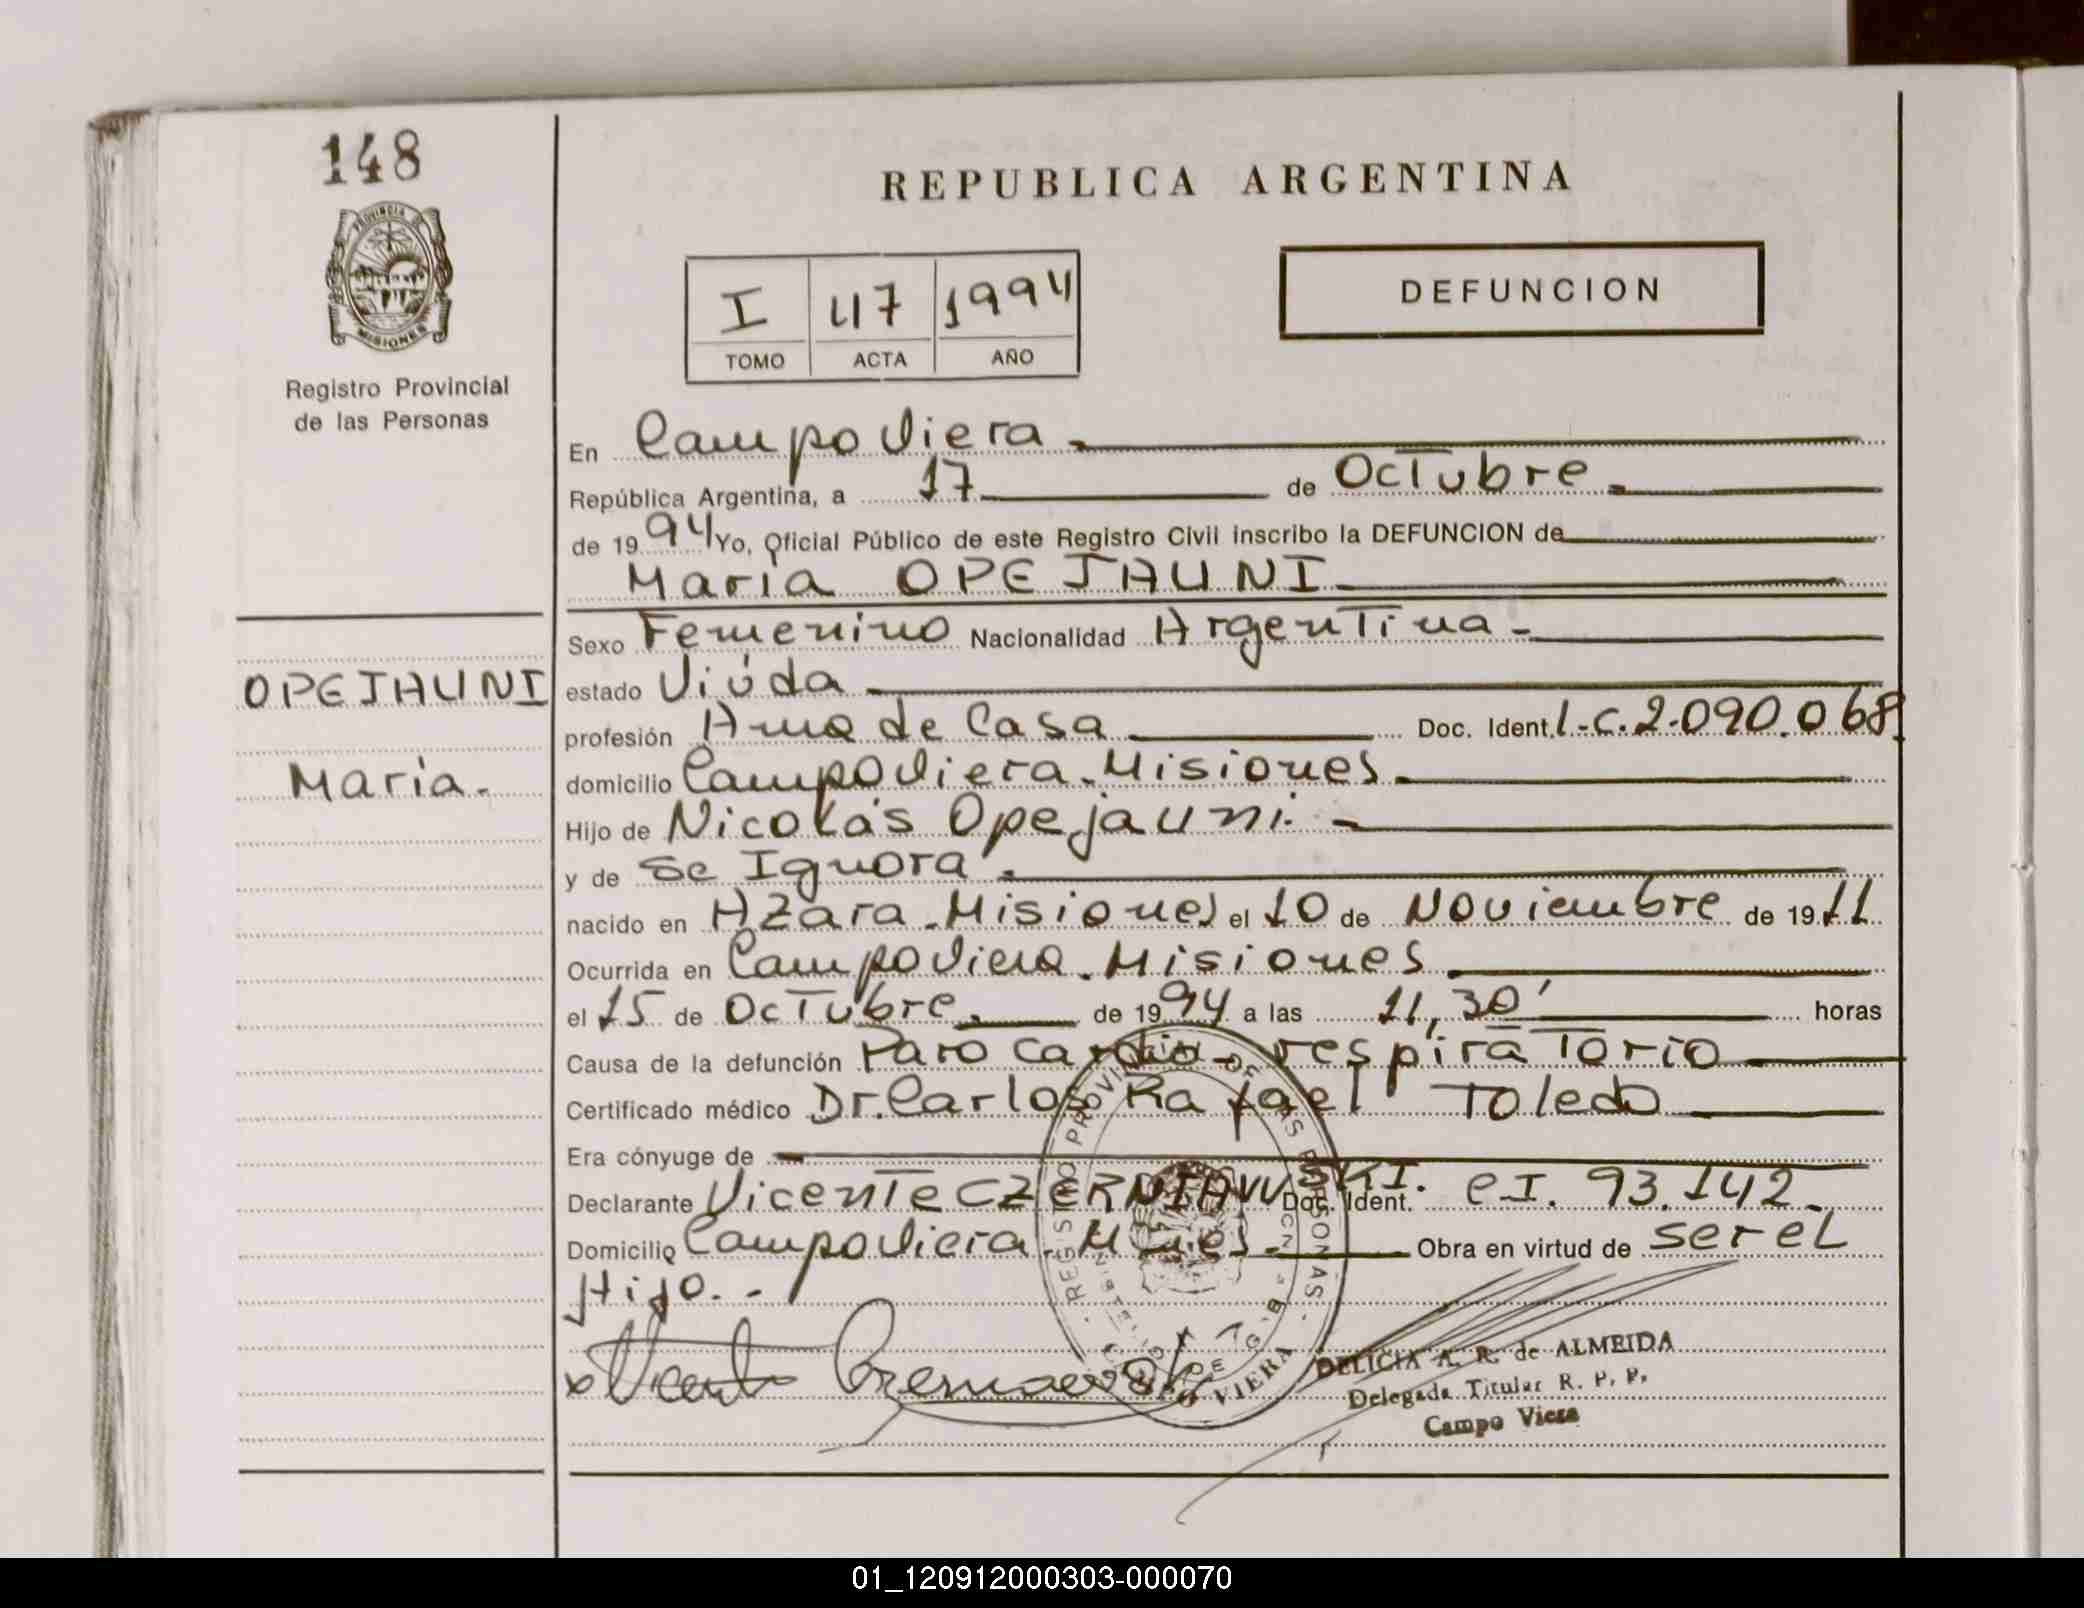 148
PROVINCIA DE
MISIONES
Registro Provincial
de las Personas
OPEJAUNI
María.
REPUBLICA ARGENTINA
I 47 1994
TOMO ACTA AÑO
DEFUNCION
En Campo Viera
República Argentina, a 17 de Octubre
de 1994 Yo, Oficial Público de este Registro Civil inscribo la DEFUNCION de
María OPEJAUNI
Sexo Femenino Nacionalidad Argentina
estado Viúda
profesión Ama de Casa Doc. Ident. L.C. 2.090.068
domicilio Campo Viera - Misiones
Hijo de Nicolás Opejauni
y de Se Ignora
nacido en Azara - Misiones el 10 de Noviembre de 1911
Ocurrida en Campo Viera - Misiones
el 15 de Octubre de 1994 a las 11,30' horas
Causa de la defunción Paro cardio-respiratorio
Certificado médico Dr. Carlos Rafael Toledo
Era cónyuge de
Declarante Vicente CZERNIAWSKI. Doc. Ident. C.I. 93.142
Domicilio Campo Viera - Mnes. Obra en virtud de ser el
Hijo.
REGISTRO PROVINCIAL DE LAS PERSONAS
CAMPO VIERA
DELICIA A. R. de ALMEIDA
Delegada Titular R. P. P.
Campo Viera
01_120912000303-000070